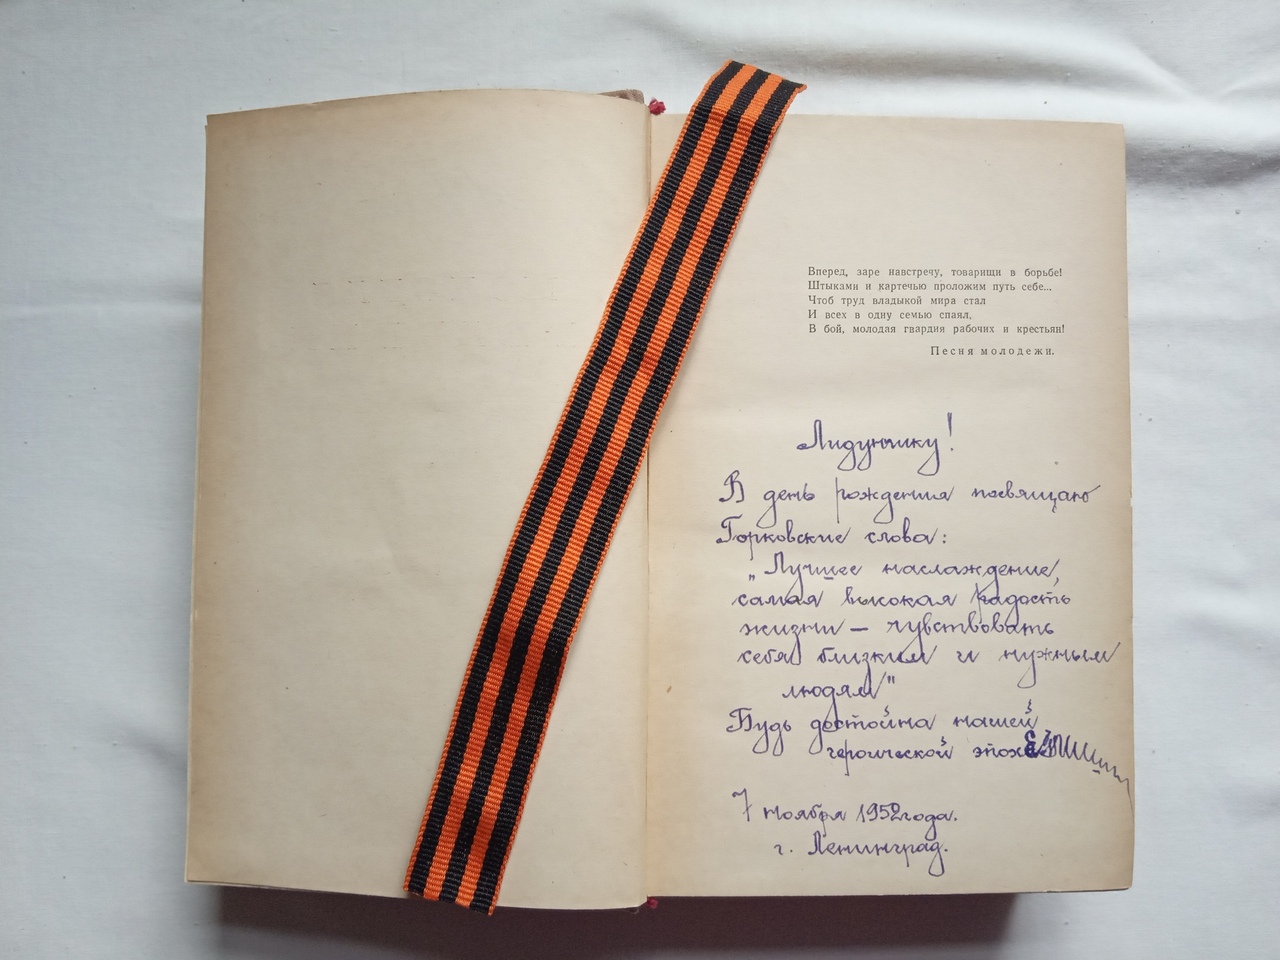 Вперед, заре навстречу, товарищи в борьбе!
Штыками и картечью проложим путь себе...
Чтоб труд владыкой мира стал
И всех в одну семью спаял,
В бой, молодая гвардия рабочих и крестьян!
Песня молодежи.
Лидунчику!
В день рождения посвящаю
Горковские слова:
„Лучшее наслаждение,
самая высокая радость
жизни — чувствовать
себя близким и нужным
людям"
Будь достойна нашей
героической эпохи
7 ноября 1952 года.
г. Ленинград.